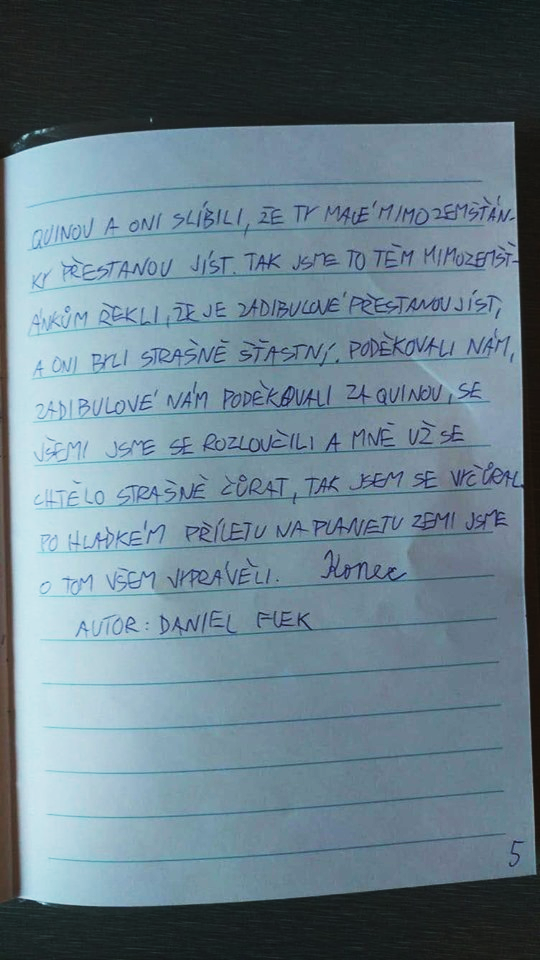 QUINOU A ONI SLÍBILI, ŽE TY MALÉ MIMOZEMŠŤÁN-
KY PŘESTANOU JÍST. TAK JSME TO TĚM MIMOZEMŠŤ-
ÁNKŮM ŘEKLI, ŽE JE ZADIBULOVÉ PŘESTANOU JÍST,
A ONI BYLI STRAŠNĚ ŠŤASTNÍ. PODĚKOVALI NÁM,
ZADIBULOVÉ NÁM PODĚKOVALI ZA QUINOU, SE
VŠEMI JSME SE ROZLOUČILI A MNĚ UŽ SE
CHTĚLO STRAŠNĚ ČŮRAT, TAK JSEM SE VYČŮRAL.
PO HLADKÉM PŘÍLETU NA PLANETU ZEMI JSME
O TOM VŠEM VYPRÁVĚLI. Konec
AUTOR: DANIEL FLEK
5